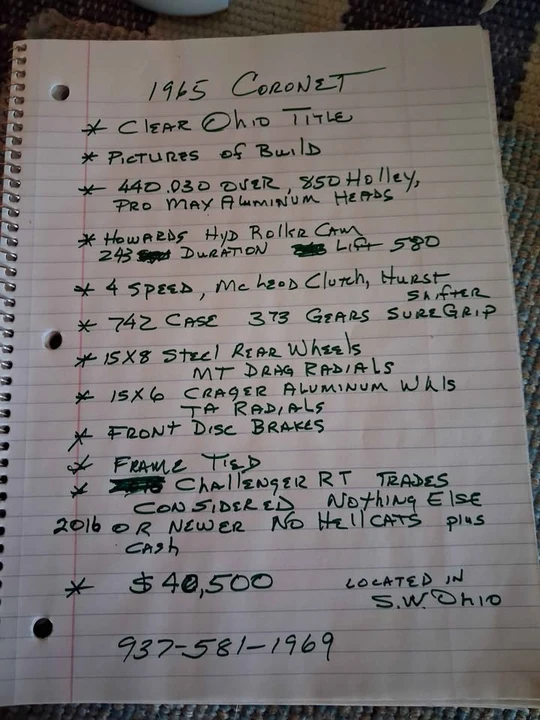 1965 CORONET
* CLEAR OHIO TITLE
* PICTURES OF BUILD
* 440.030 OVER, 850 HOLLEY,
PRO MAX ALUMINUM HEADS
* HOWARDS HYD ROLLER CAM
243 DURATION LIFT 580
* 4 SPEED, MCLEOD CLUTCH, HURST
SHIFTER
* 742 CASE 373 GEARS SUREGRIP
* 15X8 STEEL REAR WHEELS
MT DRAG RADIALS
* 15X6 CRAGER ALUMINUM WHLS
TA RADIALS
* FRONT DISC BRAKES
* FRAME TIED
* CHALLENGER RT TRADES
CONSIDERED NOTHING ELSE
2016 OR NEWER NO HELLCATS PLUS
CASH
* $40,500 LOCATED IN
S.W. OHIO
937-581-1969